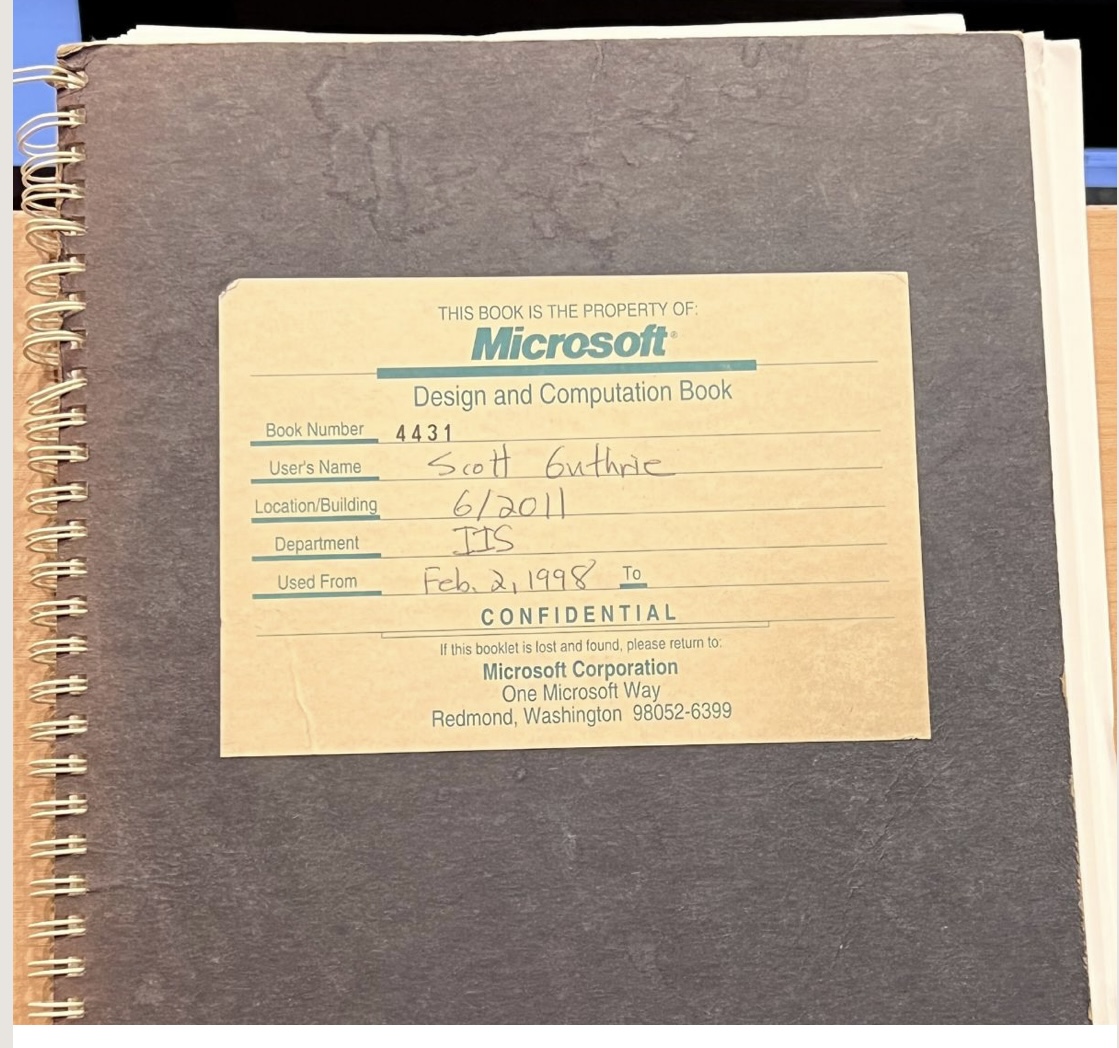 THIS BOOK IS THE PROPERTY OF:
Microsoft®
Design and Computation Book
Book Number 4431
User's Name Scott Guthrie
Location/Building 6/2011
Department IIS
Used From Feb. 2, 1998 To
CONFIDENTIAL
If this booklet is lost and found, please return to:
Microsoft Corporation
One Microsoft Way
Redmond, Washington 98052-6399